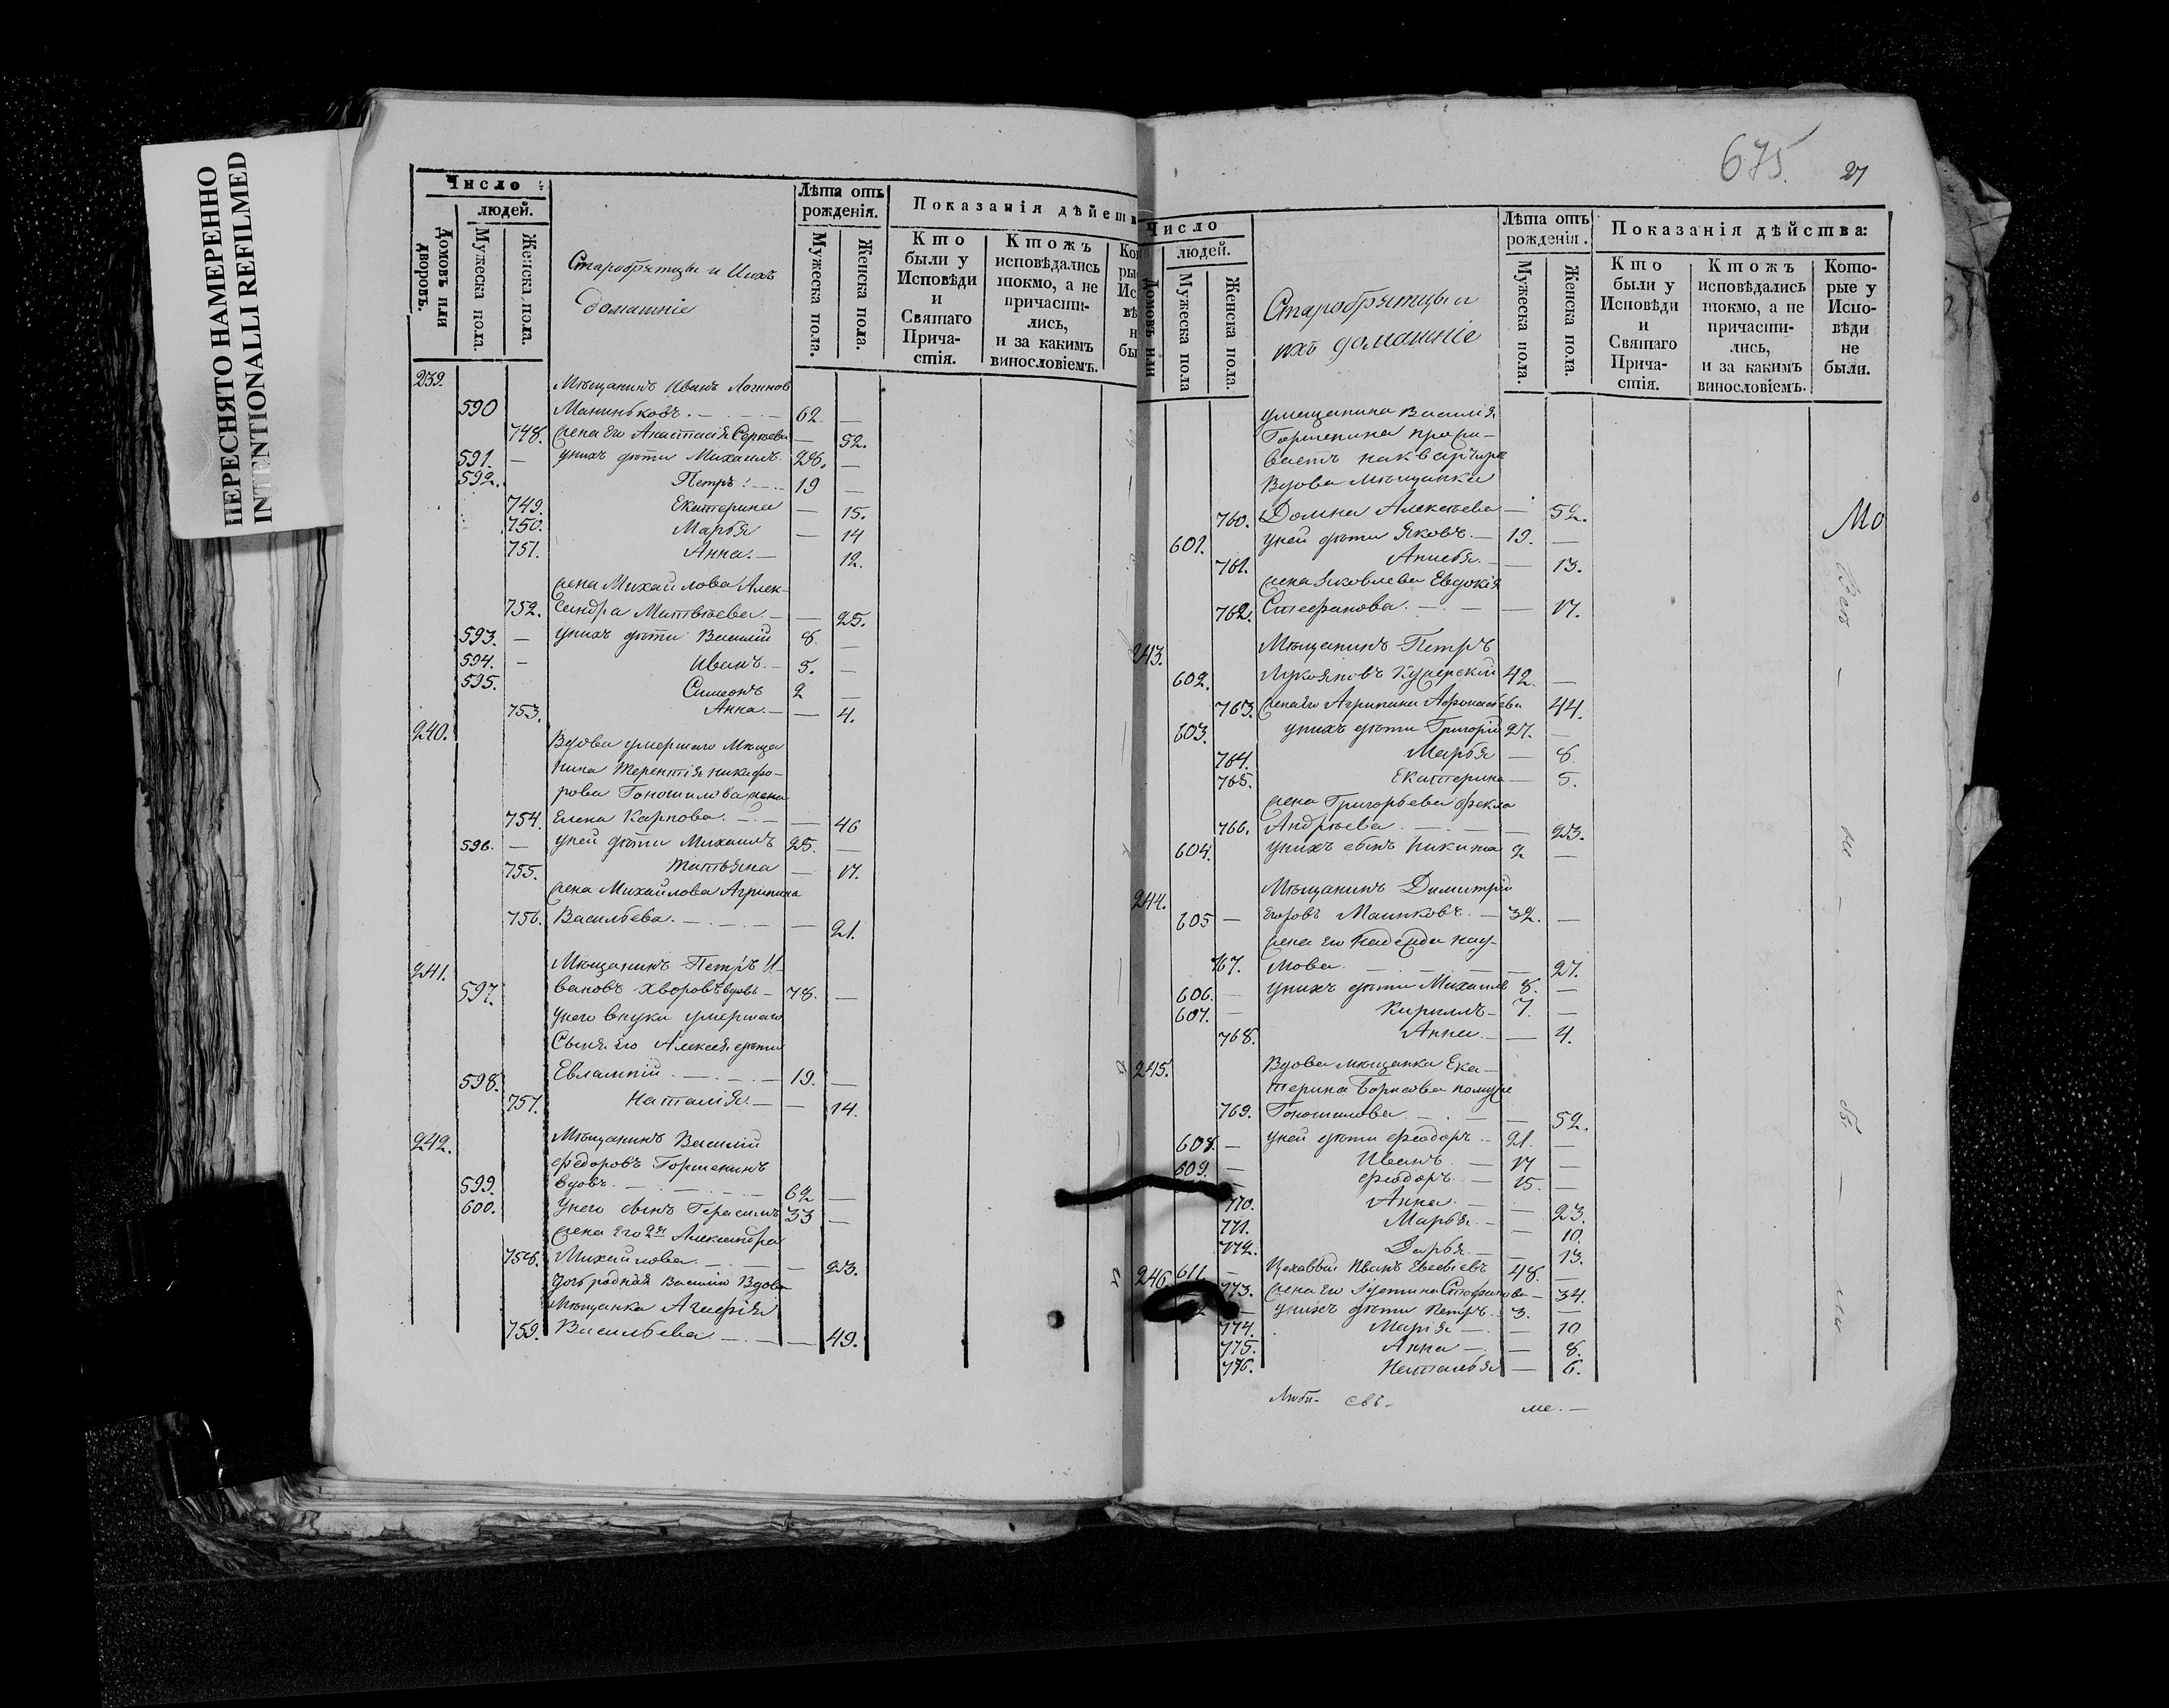 ПЕРЕСНЯТО НАМЕРЕННО
INTENTIONALLI REFILMED
Число
людей.
Домовъ или дворовъ.
Мужеска пола.
Женска пола.
Старобрятцы и Ихъ
домашніе
Лѣта отъ рожденія.
Мужеска пола.
Женска пола.
Показанія дѣйств
Кто были у Исповѣди и Святаго Прича- стія.
Ктожъ исповѣдались токмо, а не причасти- лись, и за какимъ винословіемъ.
239. Мѣщанинъ Иванъ Логинов
590 Маниньковъ. 62. —
748. жена Его Анастасія Сергѣева — 52.
591. — у нихъ дѣти Михаилъ 28. —
592. Петръ 19 —
749. Екатерина — 15.
750. Марья — 14
751. Анна. — 12.
жена Михайлова Алек-
752. сандра Матвѣева — 25.
593. — у нихъ дѣти Василій 8 —
594. — Иванъ. 5. —
595. Симеонъ 2 —
753. Анна. — 4.
240. Вдова умершаго Мѣща
нина Терентія Никифо-
рова Гоношилова жена
754. Елена Карпова. — 46
596. — у ней дѣти Михаилъ 25. —
755. Татьяна — 17.
жена Михайлова Агрипина
756. Васильева. — 21.
241. Мѣщанинъ Петръ И-
597. вановъ Хворовъ вдовъ 78. —
у него внуки умершаго
Сына Его Алексея дѣти
598. Евлампій 19. —
757. Наталія. — 14.
242. Мѣщанинъ Василій
Федоровъ Горшенинъ
599. вдовъ. 62 —
600. у него сынъ Герасимъ 33 —
жена Его 2я Александра
758. Михайлова. — 23.
Мѣщанка
759. Васильева — 49.
675.
27
Число
людей.
Домовъ или
Мужеска пола
Женска пола.
Старобрятцы и
ихъ домашніе
Лѣта отъ рожденія.
Мужеска пола.
Женска пола.
Показанія дѣйства:
Кто были у Исповѣди и Святаго Прича- стія.
Ктожъ исповѣдались токмо, а не причасти- лись, и за какимъ винословіемъ.
Кото- рые у Испо- вѣди не были.
у мещанина Василія
Горшенина прожи-
ваетъ на квартире
Вдова Мѣщанка
760. Домна Алексѣева — 52.
601. у ней дѣти Яковъ. 19. —
761. Анисья. — 13.
жена Яковлева Евдокія
762. Стефанова. — 17.
243. Мѣщанинъ Петръ
602. Лукояновъ 42. —
763. жена Его Агрипина 44.
603. у нихъ дѣти Григорій 27. —
764. Марья — 8.
765. Екатерина — 5.
жена Григорьева Фекла
766. Андрѣева — 23.
604. у нихъ сынъ Никита 2 —
244. Мѣщанинъ Димитрій
605 — Егоровъ 32. —
жена Его Надежда Нау-
767. мова. — 27.
606. — у нихъ дѣти Михаилъ 8. —
607. — Кирилъ 7. —
768. Анна — 4.
245. Вдова мѣщанка Ека-
терина Борисова по мужѣ
769. Гоношилова — 52.
608. — у ней дѣти Феодоръ 21. —
609. — Иванъ — 17 —
Феодоръ — 15. —
770. Анна — 23.
771. Марья — 10.
772. Дарья — 13.
246 611 — Цеховый Иванъ 48. —
773. жена Его — 34.
— у нихъ дѣти Петръ 3. —
774. Марія — 10
775. Анна — 8.
776. Наталья — 6.